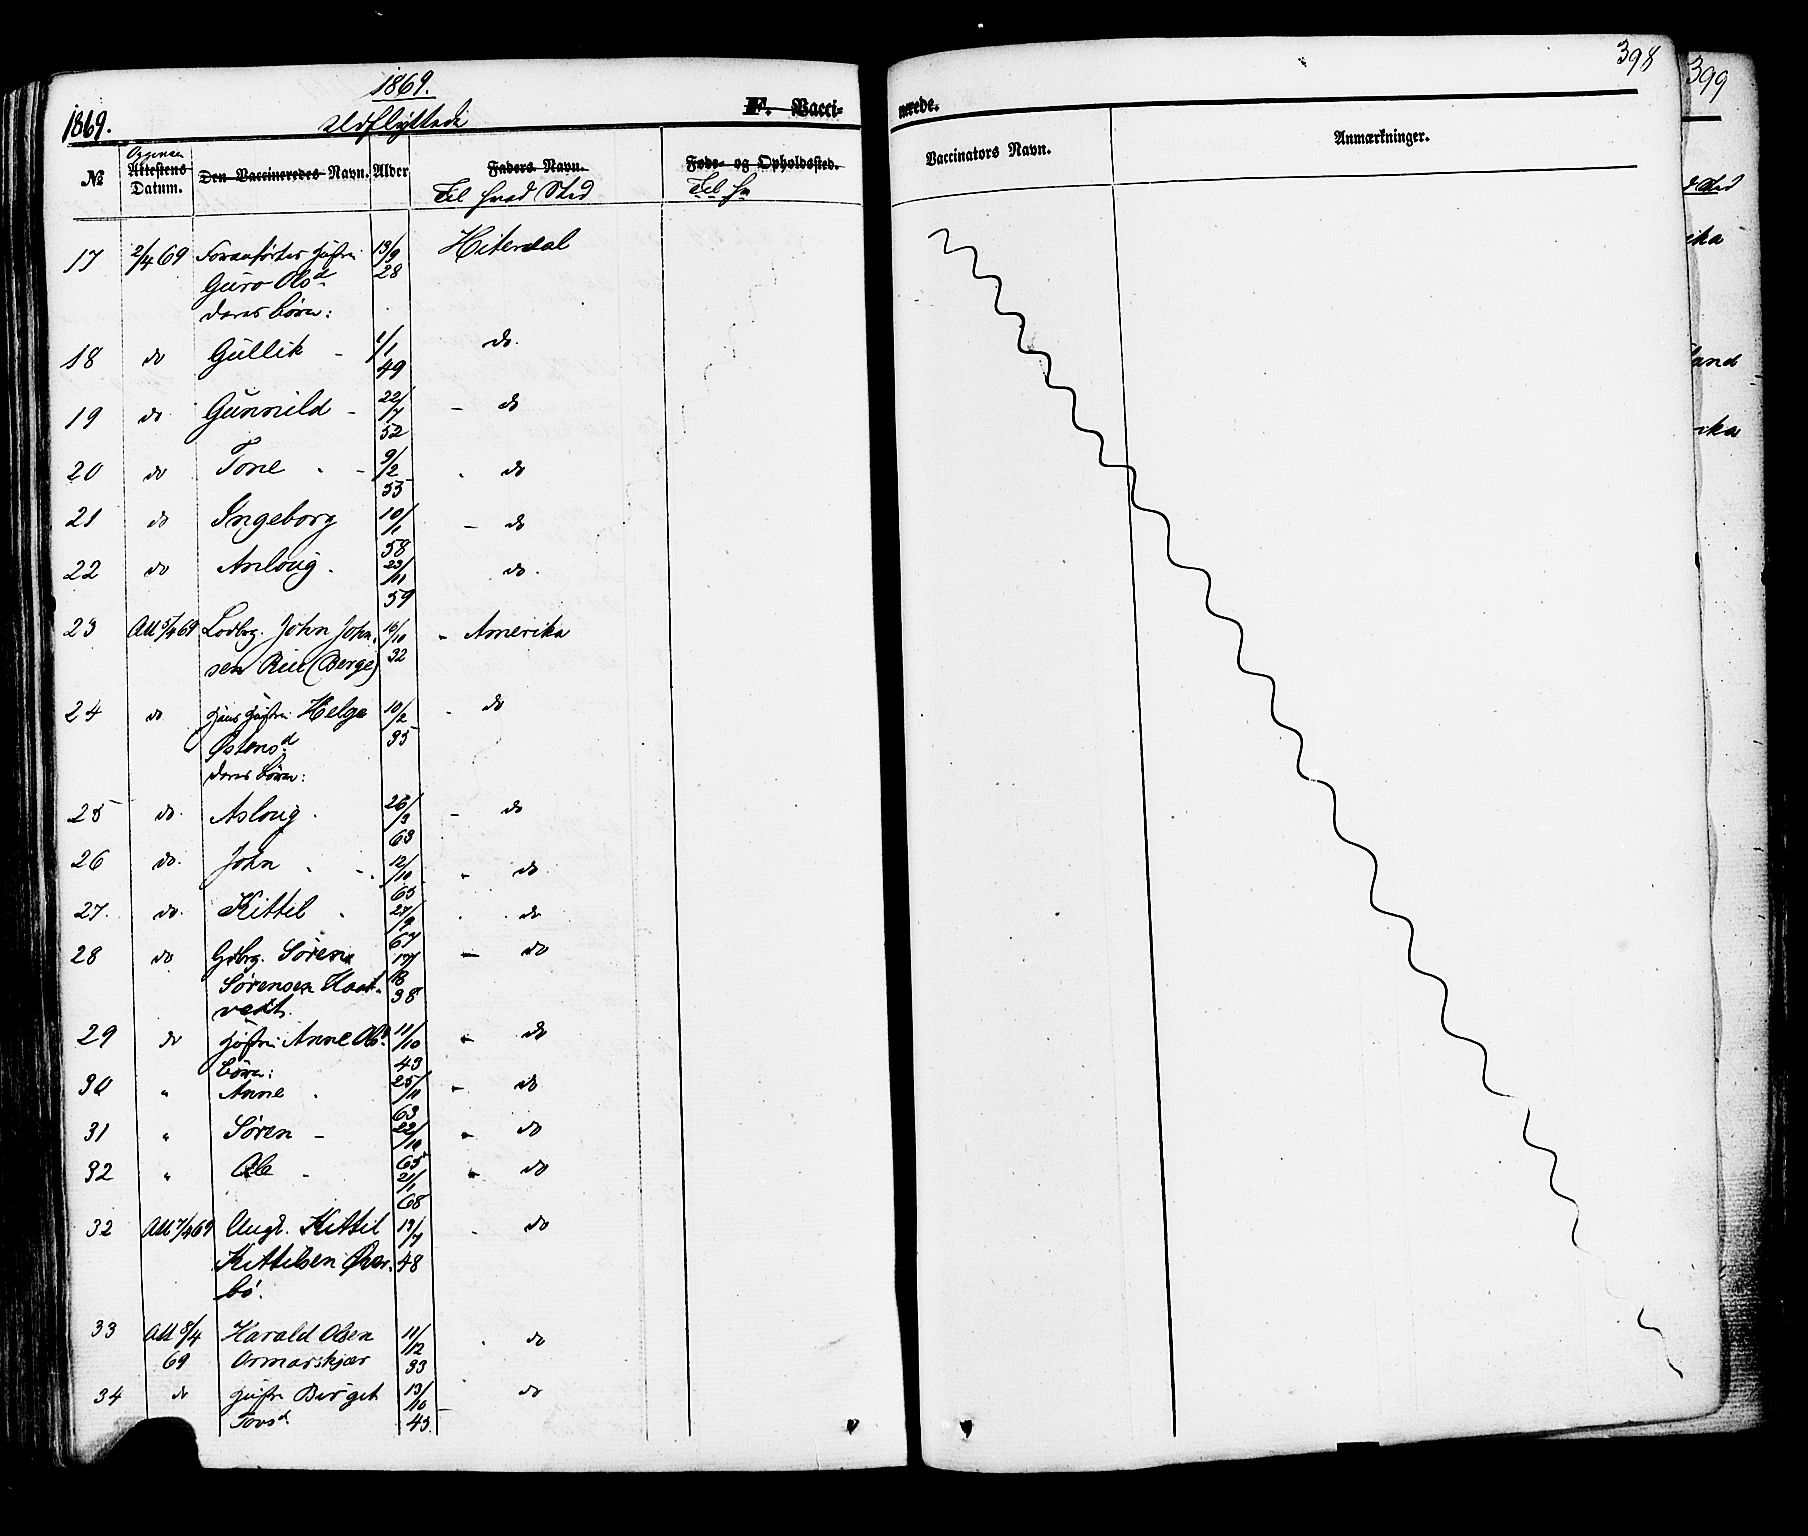 1869.
1869.
Udflyttede
F. Vacci-
No
Attestens Datum.
Den Vaccineredes Navn.
Alder
Faders Navn.
Til hvad Sted
Føde- og Opholdssted.
Til hv
17 2/4 69 Foranførtes Hustru 13/9 28 Hiterdal
Guro Olsd
deres børn:
18 do Gullik - 1/1 49 do.
19 do Gunnild - 22/7 52 - do
20 do Tone 9/2 55 do
21 do Ingeborg 10/1 58 - do
22 do Asloug. 23/11 59 do.
23 Att 5/4 69 Lodbrg. John John- 16/10 32 - Amerika
sen Rue (Berge)
24 do Hans Hustru Helge 10/2 35 - do
Østensd
deres børn:
25 do. Asloug. 26/3 63 - do
26 do. John 12/10 65 - do.
27. do. Kittil 27/9 67 do
28 do Gdbrg. Søren 17/8 38 - do
Sørensen Haat-
vedt.
29 do Hustru Anne Olsd 11/10 43 - do
børn:
30 " Anne 25/11 63 - do
31 " Søren - 22/10 65 - do
32 " Ole 2/1 68 - do
32 Att 7/4 69 Ungk. Kittil 19/7 48 - do
Kittilsen Øver-
bø.
33 Att 8/4 69 Harald Olsen 11/12 33 do
Ormarskjær
34 do Hustru Birget 13/10 43 do
Tovsd
398
nerede.
Vaccinators Navn.
Anmærkninger.
399
d Sted
ika
land
ika